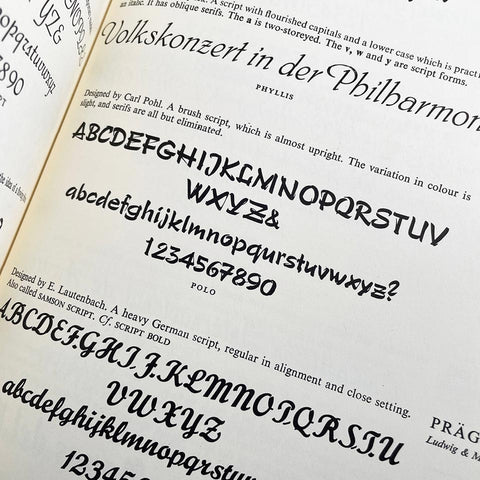 YZ&
A script with flourished capitals and a lower case which is
an italic. It has oblique serifs. The a is two-storeyed. The v, w and y are script forms.
Volkskonzert in der Philharmon
PHYLLIS
Designed by Carl Pohl. A brush script, which is almost upright. The variation in colour is
slight, and serifs are all but eliminated.
ABCDEFGHIJKLMNOPQRSTUV
WXYZ&
abcdefghijklmnopqurstuvwxyz?
1234567890
POLO
Designed by E. Lautenbach. A heavy German script, regular in alignment and close setting.
Also called SAMSON SCRIPT. Cf. SCRIPT BOLD
ABCDEFGHIJKLMNOPQRSTU
VWXYZ
abcdefghijklmnopqrstuvw
12345
PRÄG
Ludwig & M